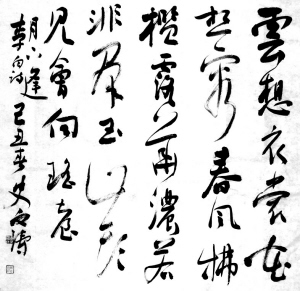 雲想衣裳花
想容春風拂
檻露華濃若
非群玉山頭
見會向瑤臺
月下逢
李白詩
己丑春史